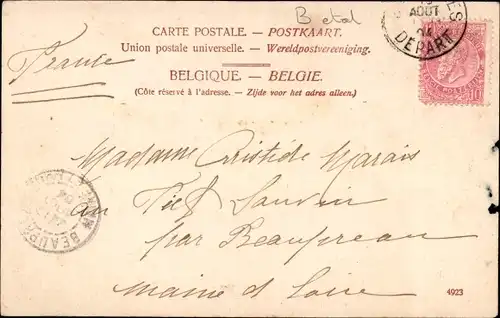 B etat
AOUT
DEPART
CARTE POSTALE. — POSTKAART.
Union postale universelle. — Wereldpostvereeniging.
France
BELGIQUE. — BELGIE.
(Côte réservé à l'adresse. — Zijde voor het adres alleen.)
10
Madame Aristide Marais
au Fief Sauvin
par Beaupreau
Maine et Loire
4923